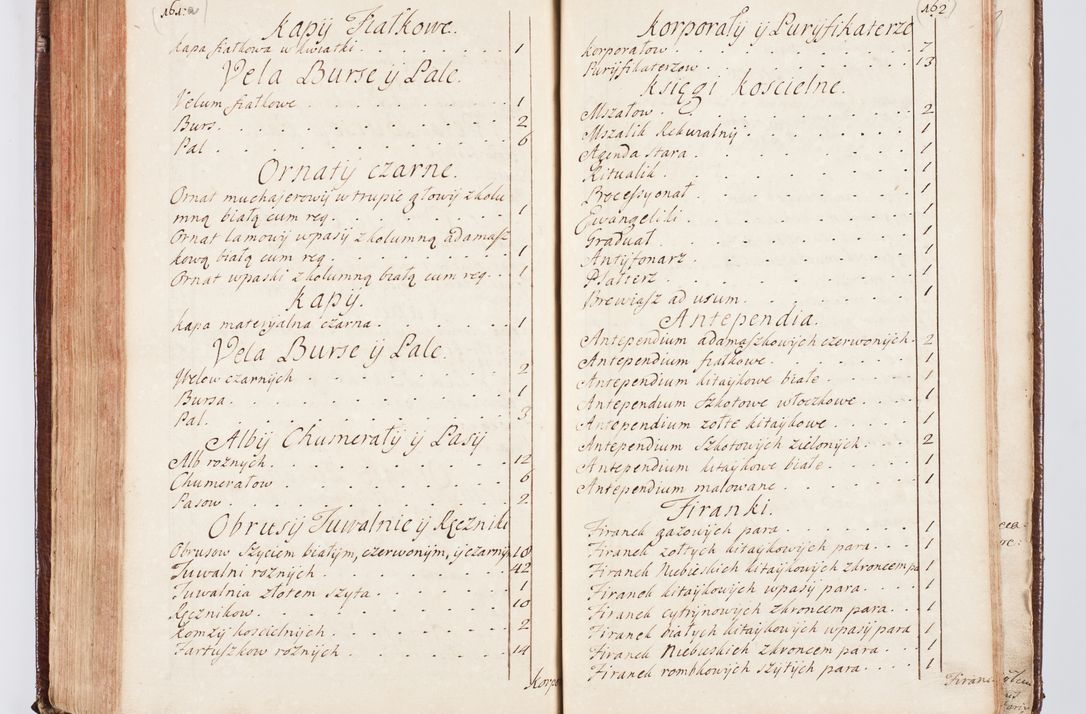 161.a
Kapÿ Fiałkowe.
Kapa fiatkowa w kwiatki . . . . . . 1
Vela Burse ÿ Pale.
Velum fiatkowe . . . . . . . . 1
Burs . . . . . . . . . . 2
Pal . . . . . . . . . . 6
Ornatÿ czarne.
Ornat muchajerowÿ w trupie głowÿ z kolu
mną białą cum req. . . . . . . 1
Ornat lamowÿ w pasÿ z kolumną adamasz
kową białą cum req. . . . . . . 1
Ornat w paski z kolumną białą cum req. . 1
Kapÿ.
Kapa materÿalna czarna . . . . . . 1
Vela Burse ÿ Pale.
Welow czarnÿch . . . . . . . . 2
Bursa . . . . . . . . . . 1
Pal . . . . . . . . . . 3
Albÿ Chumerałÿ ÿ Pasÿ
Alb rożnÿch . . . . . . . . . 12
Chumerałow . . . . . . . . . 6
Pasow . . . . . . . . . . 2
Obrusÿ Tuwalnie ÿ Ręczniki
Obrusow szÿciem białÿm, czerwonÿm, ÿ czarnÿm 18
Tuwalni rożnÿch . . . . . . . . 42
Tuwalnia złotem szÿta . . . . . . 1
Ręcznikow . . . . . . . . . 10
Komzÿ koscielnÿch . . . . . . . 2
Fartuszkow rożnÿch . . . . . . . 14
Korpo
162
Korporałÿ ÿ Purÿfikaterze
Korporałow . . . . . . . . . 7
Purÿfikaterzow . . . . . . . . 13
Księgi koscielne.
Mszałow . . . . . . . . . 2
Mszalik Rekwialnÿ . . . . . . . 1
Agenda stara . . . . . . . . 1
Rituałik . . . . . . . . . 1
Processÿonał . . . . . . . . 1
Ewangeliki . . . . . . . . . 1
Graduał . . . . . . . . . 1
Antÿfonarz . . . . . . . . . 1
Psałterz . . . . . . . . . 1
Brewiasz ad usum . . . . . . . 1
Antependia.
Antependium adamaszkowÿch czerwonÿch . 2
Antependium fiałkowe . . . . . . 1
Antependium kitaÿkowe białe . . . . 1
Antependium szkotowe włoczkowe . . . 1
Antependium zołte kitaÿkowe . . . . 1
Antependium szkotowÿch zielonÿch . . . 2
Antependium kitaÿkowe białe . . . . 1
Antependium malowane . . . . . . 1
Firanki.
Firanek gazowÿch para . . . . . . 1
Firanek zołtÿch kitaÿkowÿch para . . . 1
Firanek Niebieskich kitaÿkowÿch z kroncem pa 1
Firanek kitaÿkowÿch w pasÿ para . . . 1
Firanek cÿtrÿnowÿch z kroncem para . . 1
Firanek białÿch kitaÿkowÿch w pasÿ para 1
Firanek Niebieskich z kroncem para . . 1
Firanek rombkowÿch szÿtÿch para . . . 1
Firane